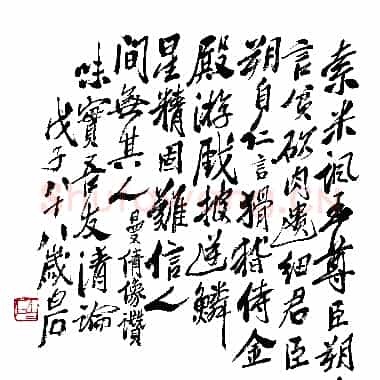 索米諷至尊臣朔
言砍肉遺細君臣
朔自仁言猾稽侍金
殿游戲披逆鱗
星精固難信人
間無其人曼倩像讚
味實吾友清論
戊子八十八歲白石